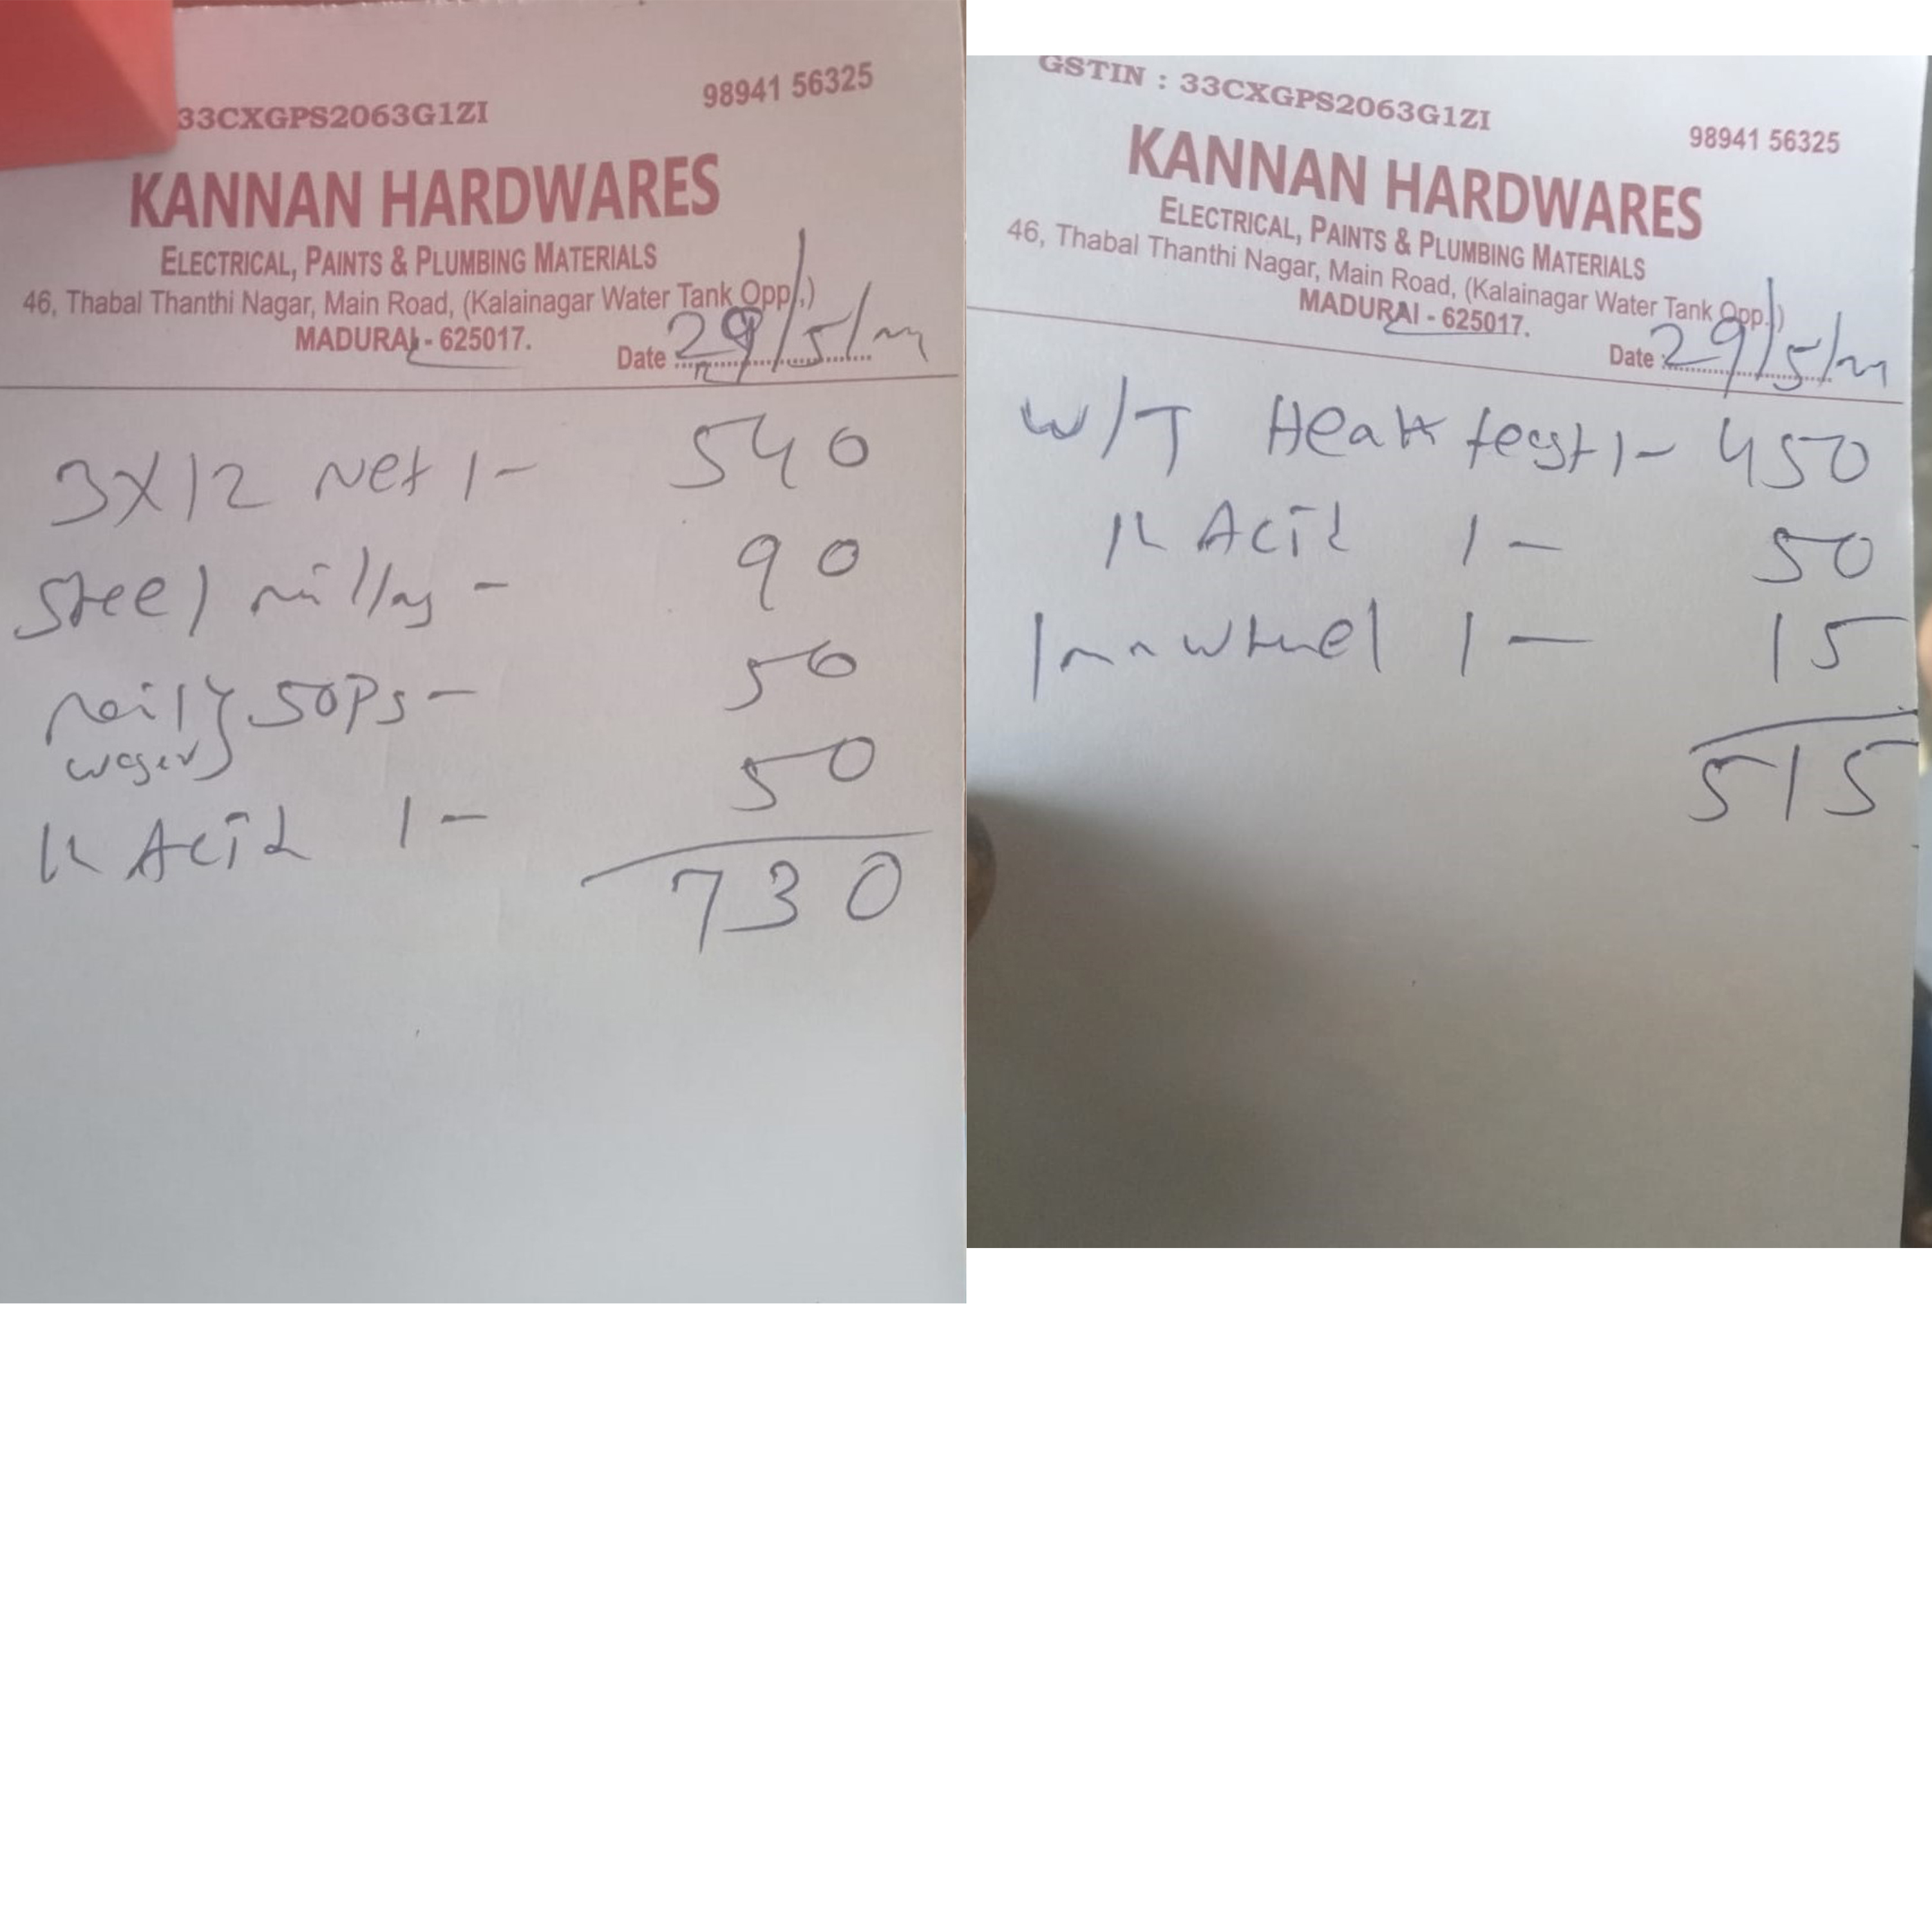 33CXGPS2063G1ZI
98941 56325
KANNAN HARDWARES
ELECTRICAL, PAINTS & PLUMBING MATERIALS
46, Thabal Thanthi Nagar, Main Road, (Kalainagar Water Tank Opp.,)
MADURAI - 625017.
Date 29/5/
3X12 Net 1- 540
Steel - 90
50Ps - 50
K Acid 1- 50
730
GSTIN : 33CXGPS2063G1ZI
98941 56325
KANNAN HARDWARES
ELECTRICAL, PAINTS & PLUMBING MATERIALS
46, Thabal Thanthi Nagar, Main Road, (Kalainagar Water Tank Opp.,)
MADURAI - 625017.
Date : 29/5/
W/T 1- 450
K Acid 1- 50
1- 15
515